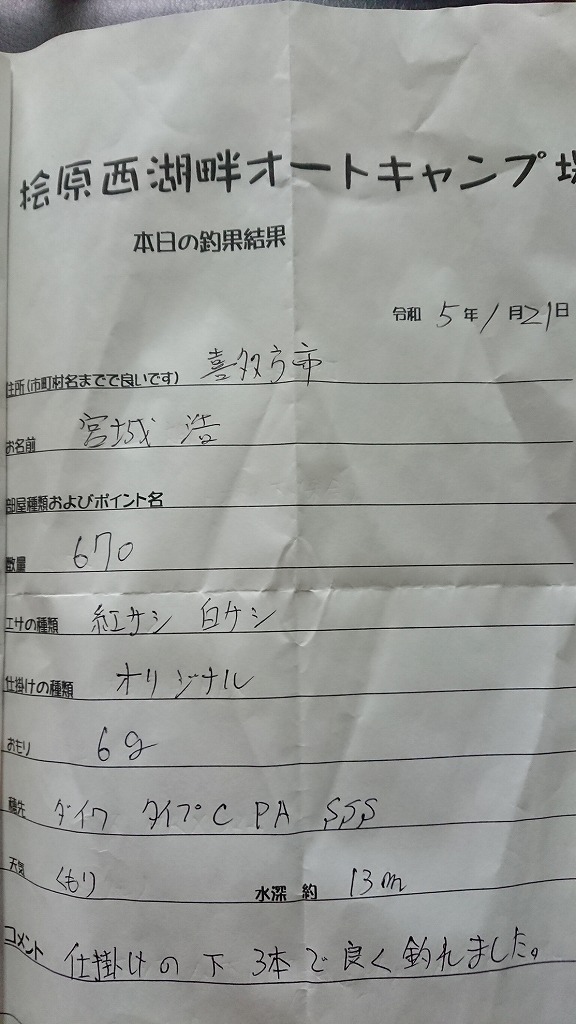 桧原西湖畔オートキャンプ場
本日の釣果結果
令和 5年 1月21日
住所(市町村名までで良いです) 喜多方市
お名前 宮城 浩
部屋種類およびポイント名
数量 670
エサの種類 紅サシ 白サシ
仕掛けの種類 オリジナル
おもり 6g
穂先 ダイワ タイプC PA SSS
天気 くもり 水深 約 13m
コメント 仕掛けの下3本で良く釣れました。